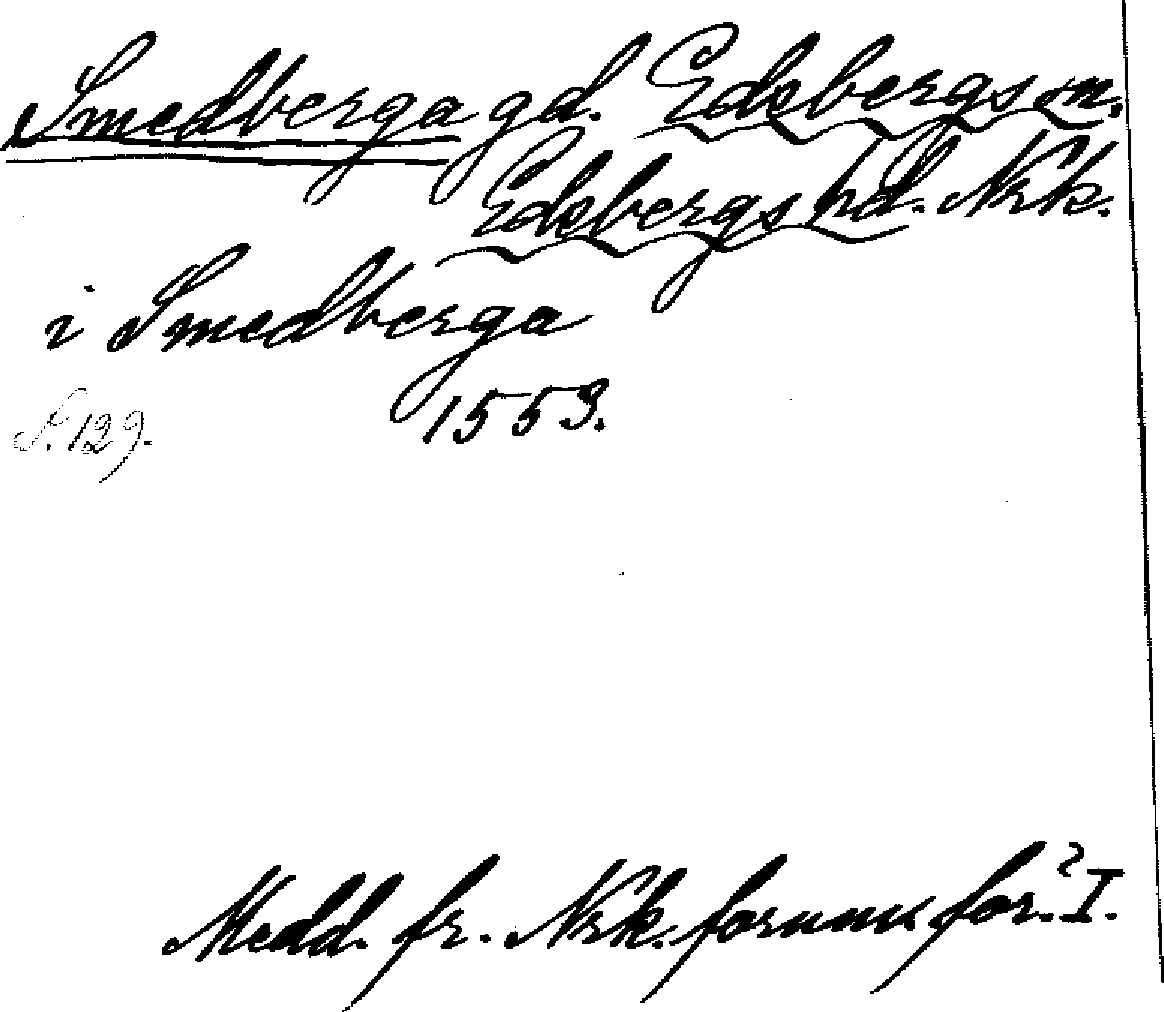 Smedberga gd. Edsbergs sn.
Edsbergs hd. Nrk.
i Smedberga
S. 129. 1553.
Medd. fr. Nrk. fornm. för. 2 I.